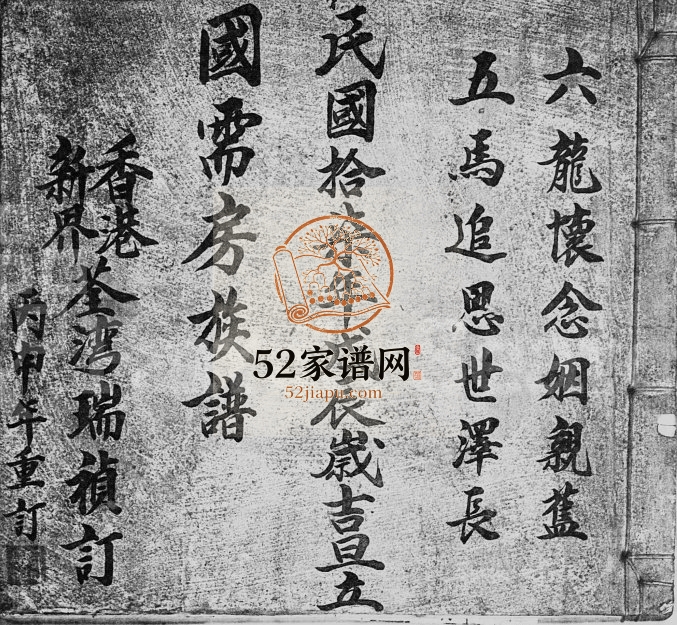 六龍懷念姻親舊
五馬追思世澤長
民國拾柒年戊辰歲吉旦立
國需房族譜
香港
新界
荃湾瑞禎訂
丙申年重訂
52家谱网
52jiapu.com